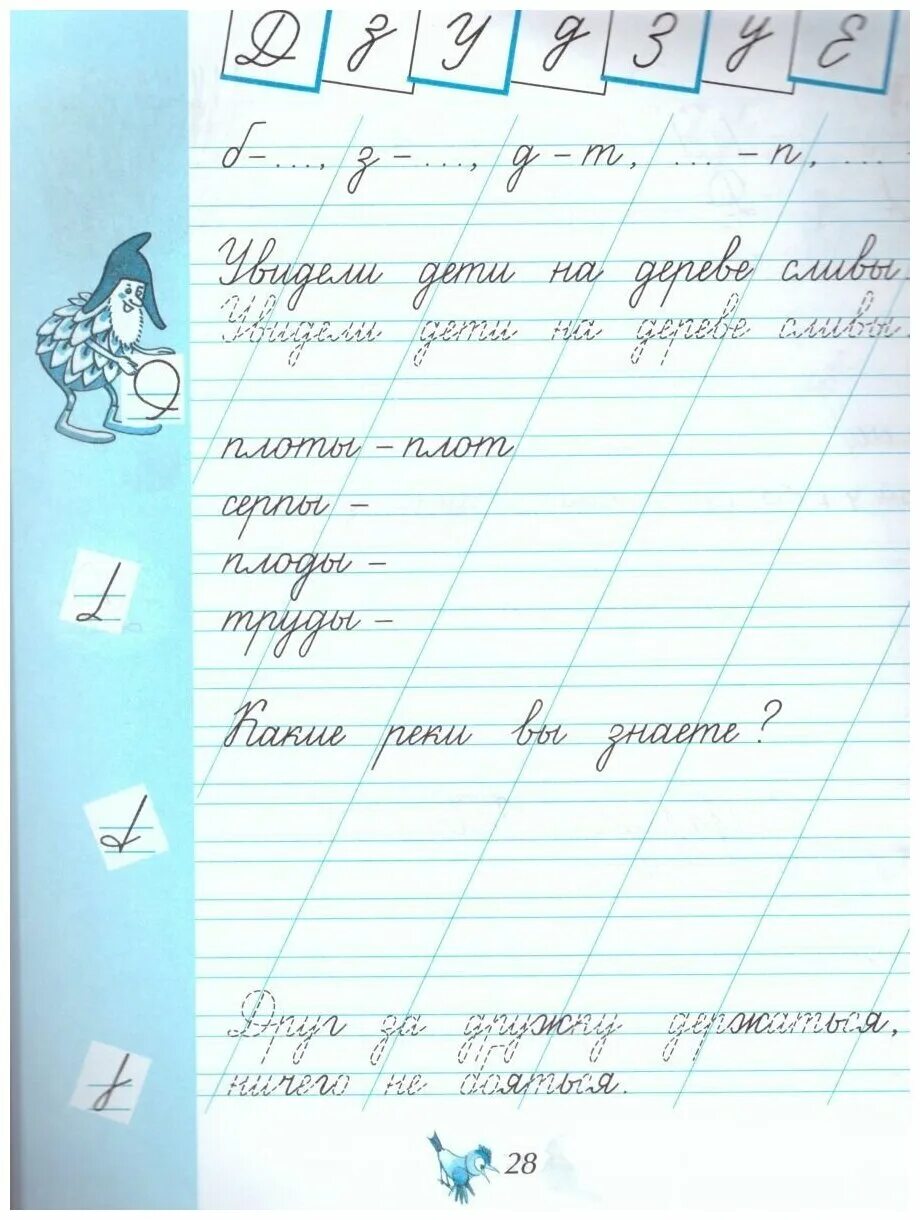 Д з У д З у Е
б – ..., з – ..., д – т, ... – п, ...
Увидели дети на дереве сливы.
Увидели дети на дереве сливы.
плоты – плот
серпы –
плоды –
труды –
Какие реки вы знаете?
Друг за дружку держаться,
ничего не бояться.
28